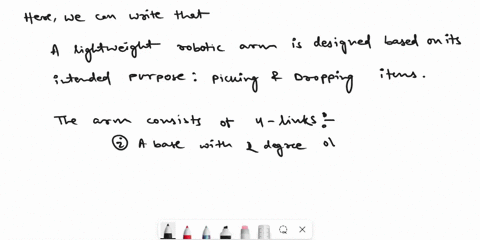 Here, we can write that
A lightweight robotic arm is designed based on its
intended purpose: picking & Dropping items.
The arm consists of 4-links:-
(i) A base with 2 degree of